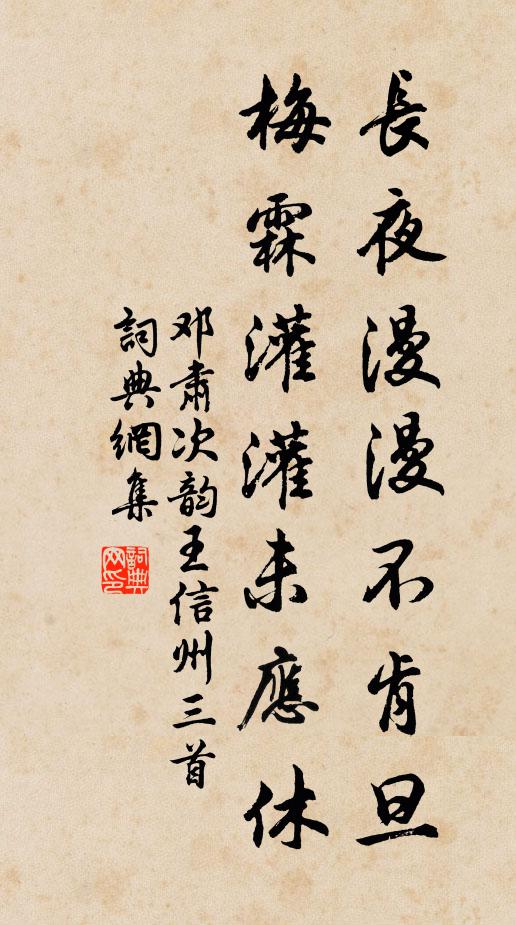 長夜漫漫不肯旦
梅霖灌灌未應休
邓肅次韵王信州三首
詞典網集
詞典
网印